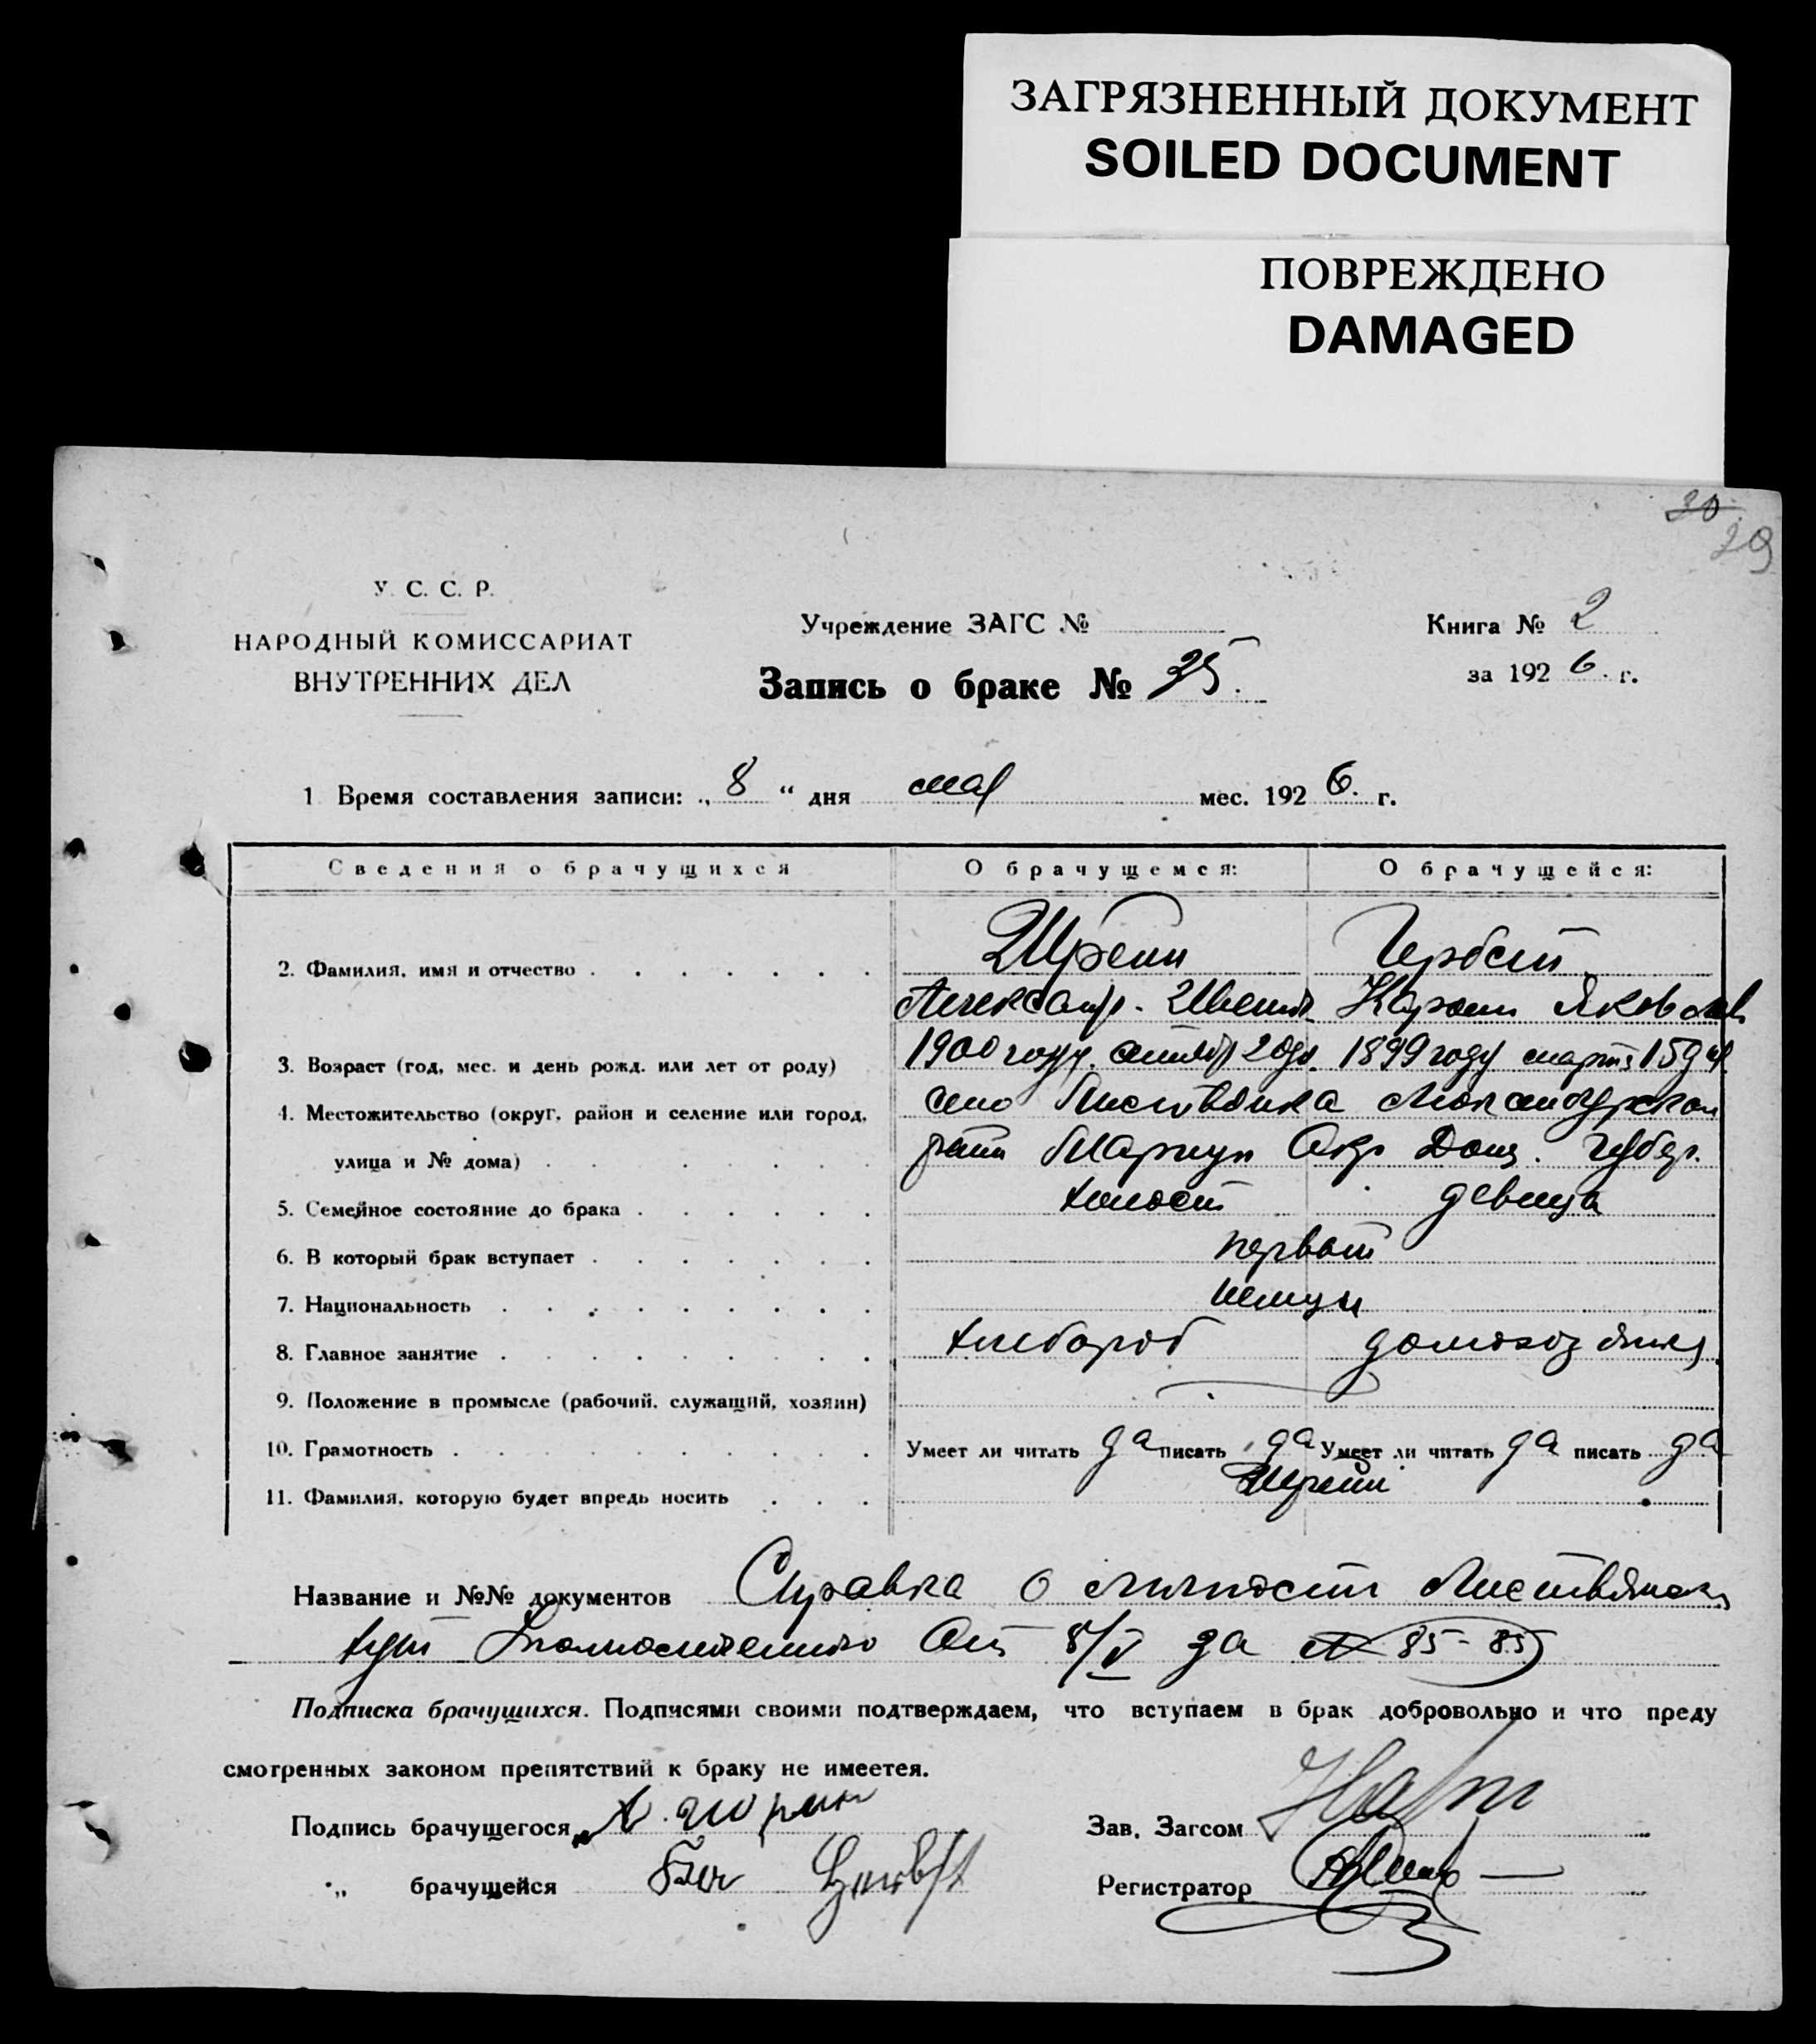 ЗАГРЯЗНЕННЫЙ ДОКУМЕНТ
SOILED DOCUMENT
ПОВРЕЖДЕНО
DAMAGED
30
29
У. С. С. Р.
НАРОДНЫЙ КОМИССАРИАТ
ВНУТРЕННИХ ДЕЛ
Учреждение ЗАГС №
Книга № 2
Запись о браке № 35.
за 1926. г.
1 Время составления записи: „ 8 “ дня мая мес. 1926. г.
Сведения о брачущихся О брачущемся: О брачущейся:
2. Фамилия, имя и отчество Шрейн Гербст
Александр Каролин Яковлев
3. Возраст (год, мес. и день рожд. или лет от роду) 1900 году 20дн. 1899 году март 15дн
4. Местожительство (округ, район и селение или город, село Листвянка Люксембургском
улица и № дома) Мариуп Окр Дон. Губер.
5. Семейное состояние до брака холост девица
6. В который брак вступает первый
7. Национальность немцы
8. Главное занятие хлебороб домохозяйка
9. Положение в промысле (рабочий, служащий, хозяин)
10. Грамотность Умеет ли читать да писать да Умеет ли читать да писать да
11. Фамилия, которую будет впредь носить Шрейн
Название и №№ документов Справка о личности
от 8/V за № 85-85
Подписка брачущихся. Подписями своими подтверждаем, что вступаем в брак добровольно и что преду
смотренных законом препятствий к браку не имеетея.
Подпись брачущегося А. Шрейн Зав. Загсом
„ брачущейся Herbst Регистратор